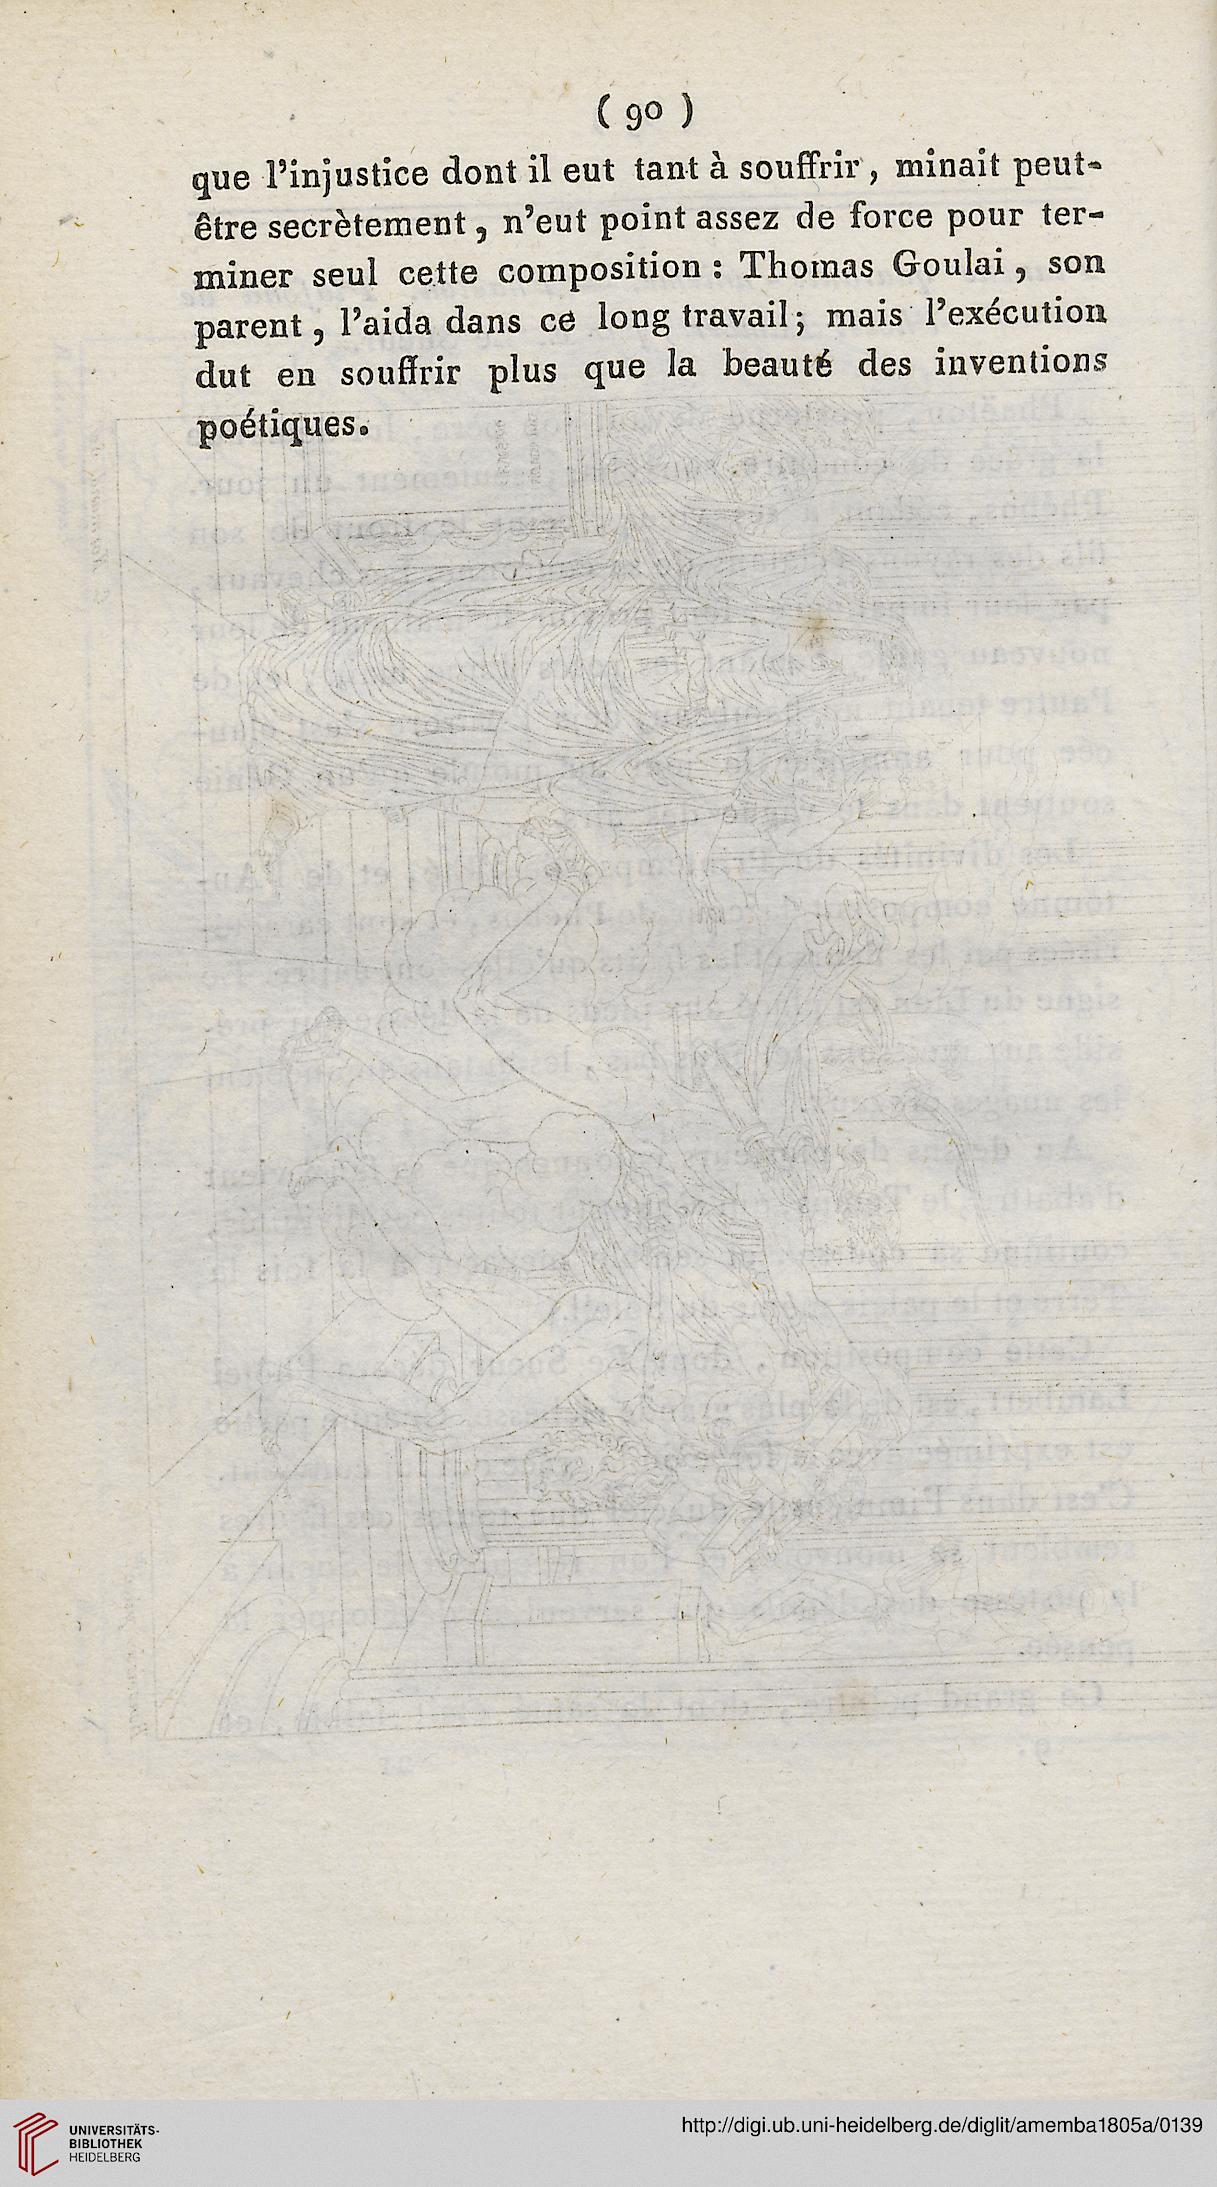 ( 90 )
que l'injustice dont il eut tant à souffrir, minait peut-
être secrètement, n'eut point assez de force pour ter-
miner seul cette composition : Thomas Goulai, son
parent, l'aida dans ce long travail; mais l'exécution
dut en souffrir plus que la beauté des inventions
poétiques.
UNIVERSITÄTS-
BIBLIOTHEK
HEIDELBERG
http://digi.ub.uni-heidelberg.de/diglit/amemba1805a/0139